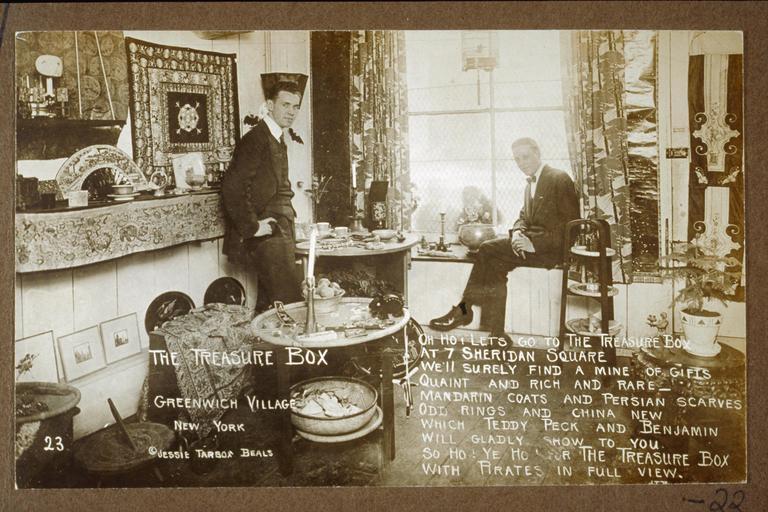 The Treasure Box
Greenwich Village
New York
©Jessie Tarbox Beals
23
Oh Ho! Let's go to The Treasure Box
At 7 Sheridan Square
We'll surely find a mine of gifts
Quaint and rich and rare—
Mandarin coats and Persian scarves
Odd rings and china new
Which Teddy Peck and Benjamin
Will gladly show to you
So Ho! Ye Ho! for The Treasure Box
With Pirates in full view.
-22